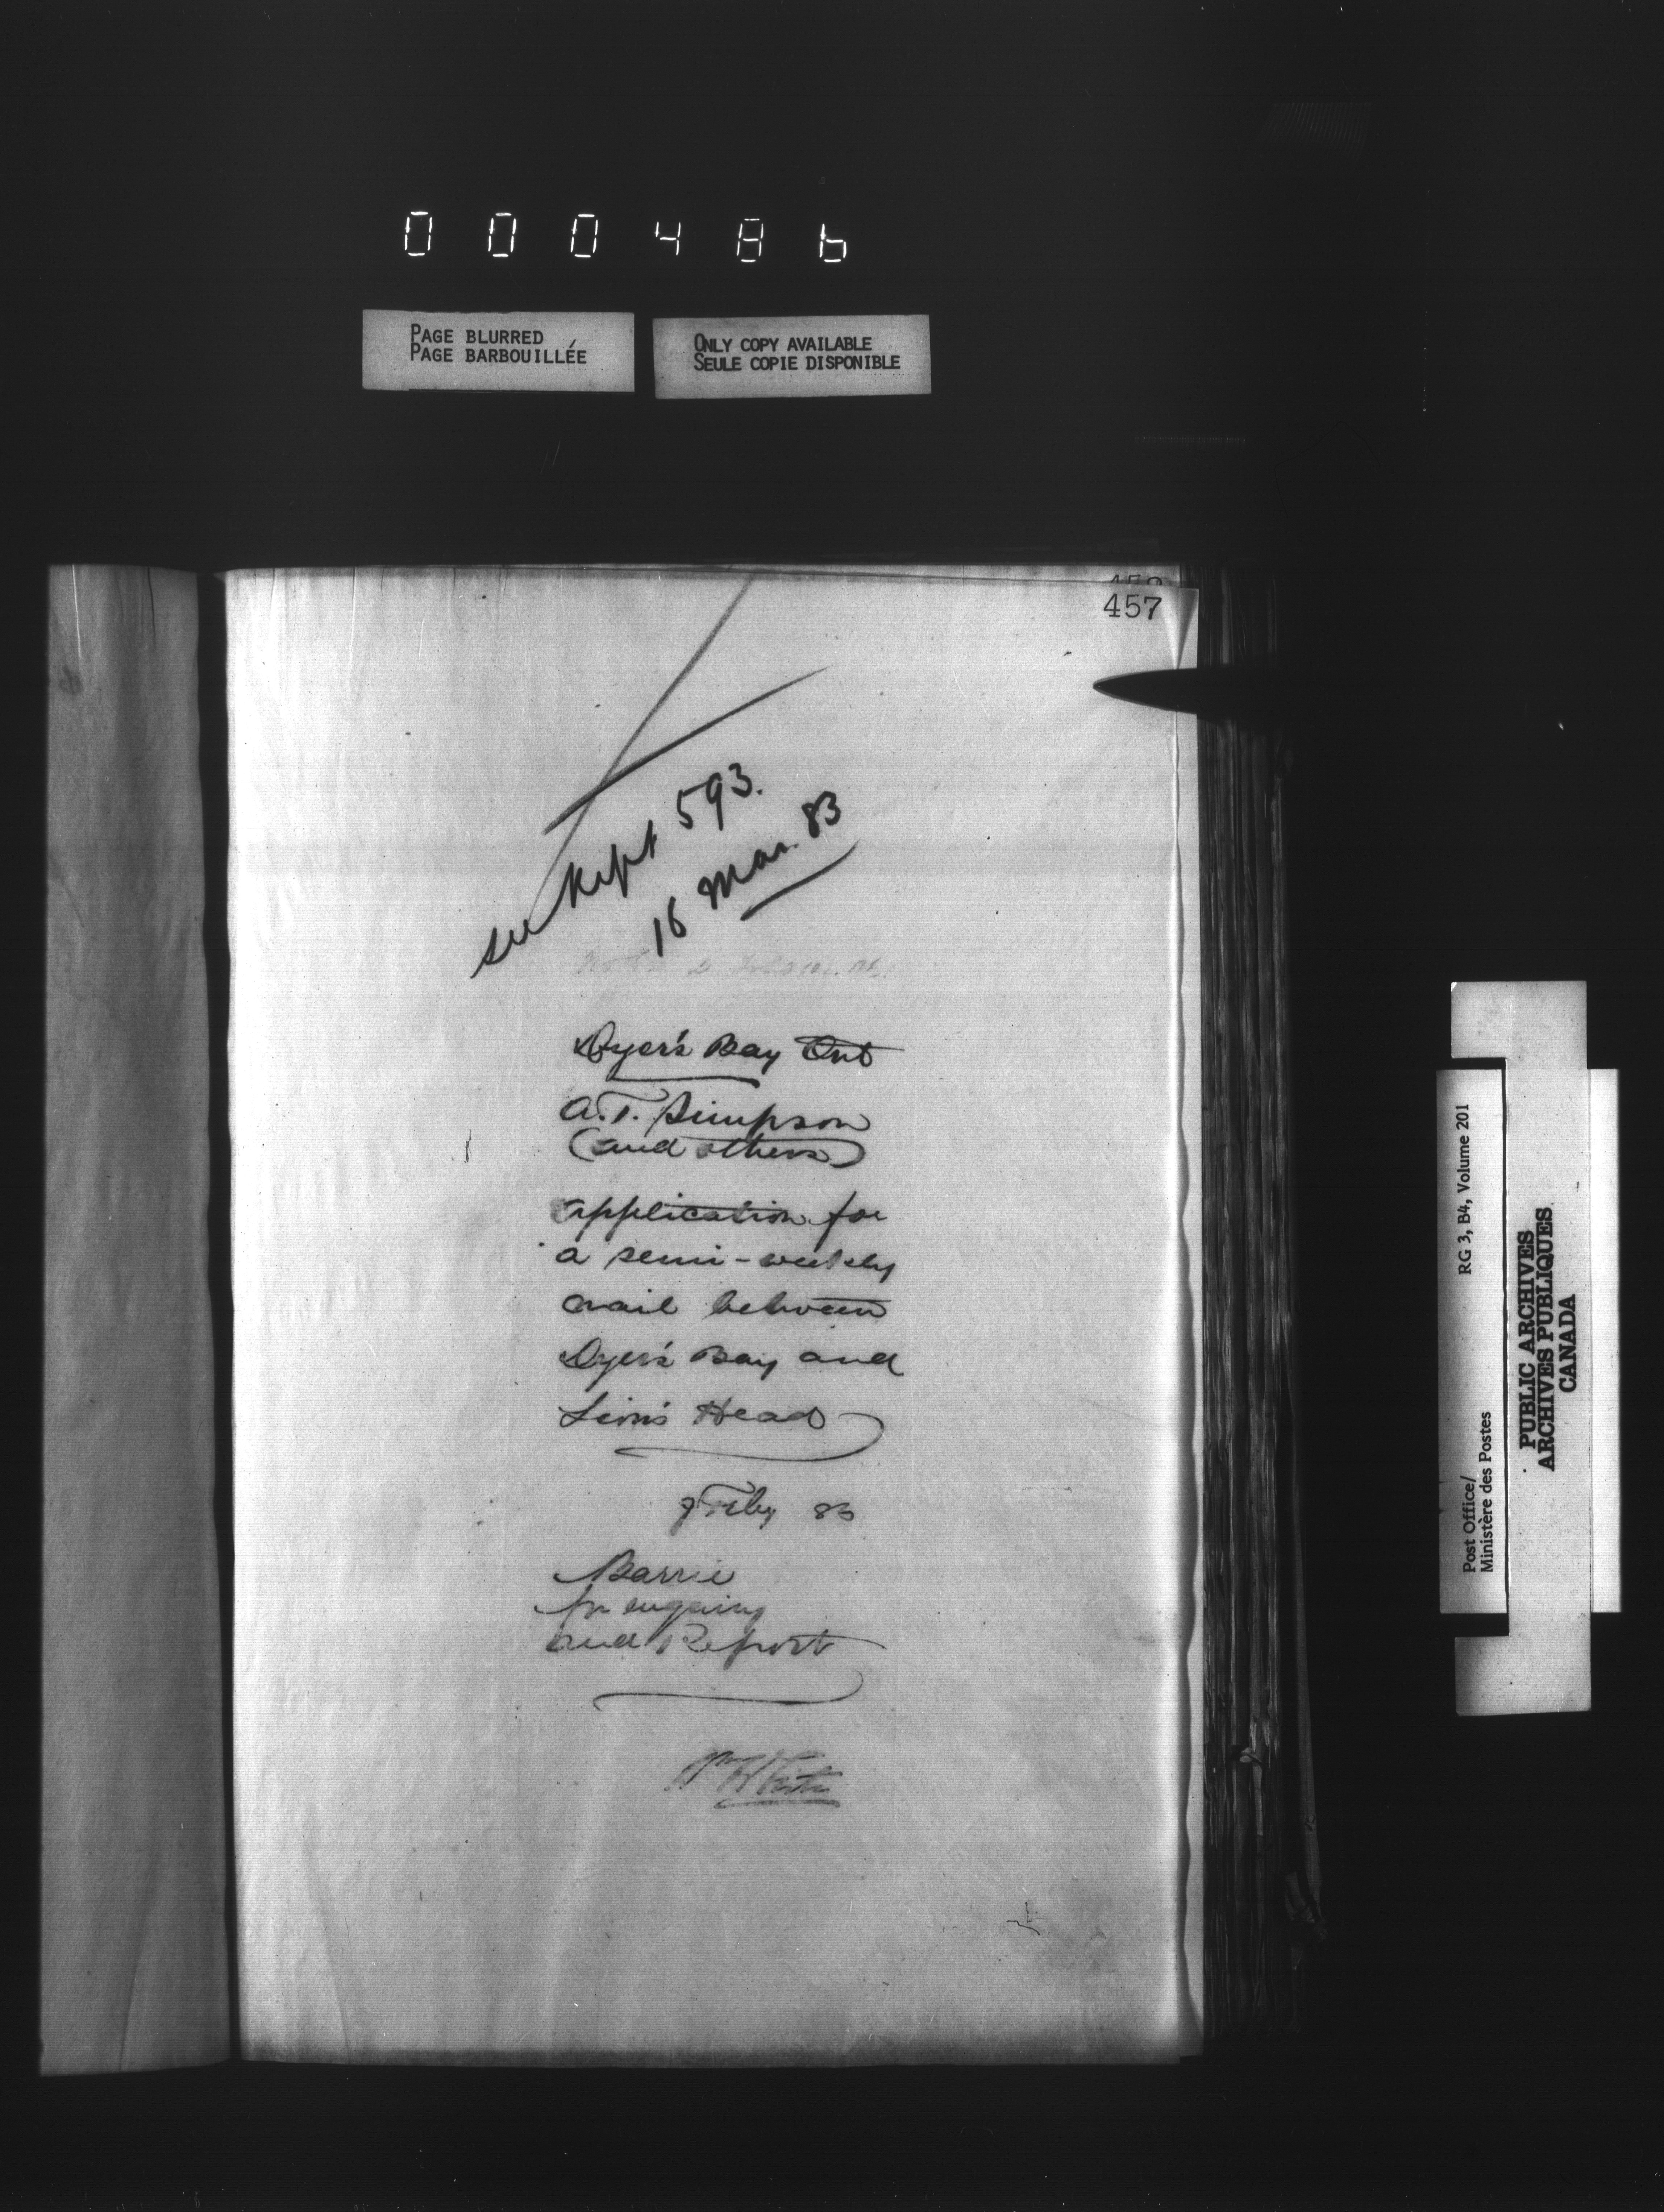 000486
PAGE BLURRED
PAGE BARBOUILLÉE
ONLY COPY AVAILABLE
SEULE COPIE DISPONIBLE
457
see Rept 593.
16 Mar. 83
Dyer's Bay Ont
A.T. Simpson
(and others)
application for
a semi-weekly
mail between
Dyer's Bay and
Lion's Head
Feby 83
Barrie
for enquiry
and Report
Wm White
RG 3, B4, Volume 201
Post Office/
Ministère des Postes
PUBLIC ARCHIVES
ARCHIVES PUBLIQUES
CANADA